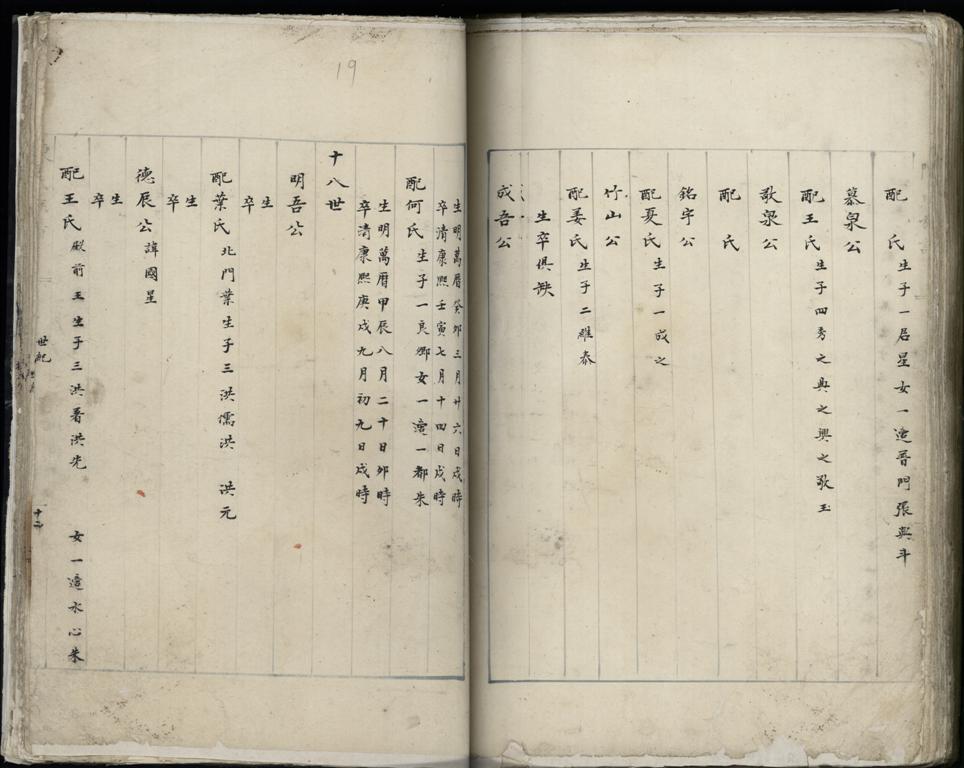 配　氏 生子一居星女一適普門張與斗
慕泉公
配王氏 生子四秀之典之興之敬玉
敬泉公
配　氏
銘宇公
配夏氏 生子一成之
竹山公
配姜氏 生子二繼泰
生卒俱缺
成吾公
19
生明萬曆癸卯三月廿六日戌時
卒清康熙壬寅七月十四日戌時
配何氏 生子一良卿女一適一都朱
生明萬曆甲辰八月二十日卯時
卒清康熙庚戌九月初九日戌時
十八世
明吾公
生
卒
配葉氏 北門葉生子三洪儒洪　洪元
生
卒
德辰公 諱國星
生
卒
配王氏 殿前王生子三洪善洪先　女一適水心朱
世紀